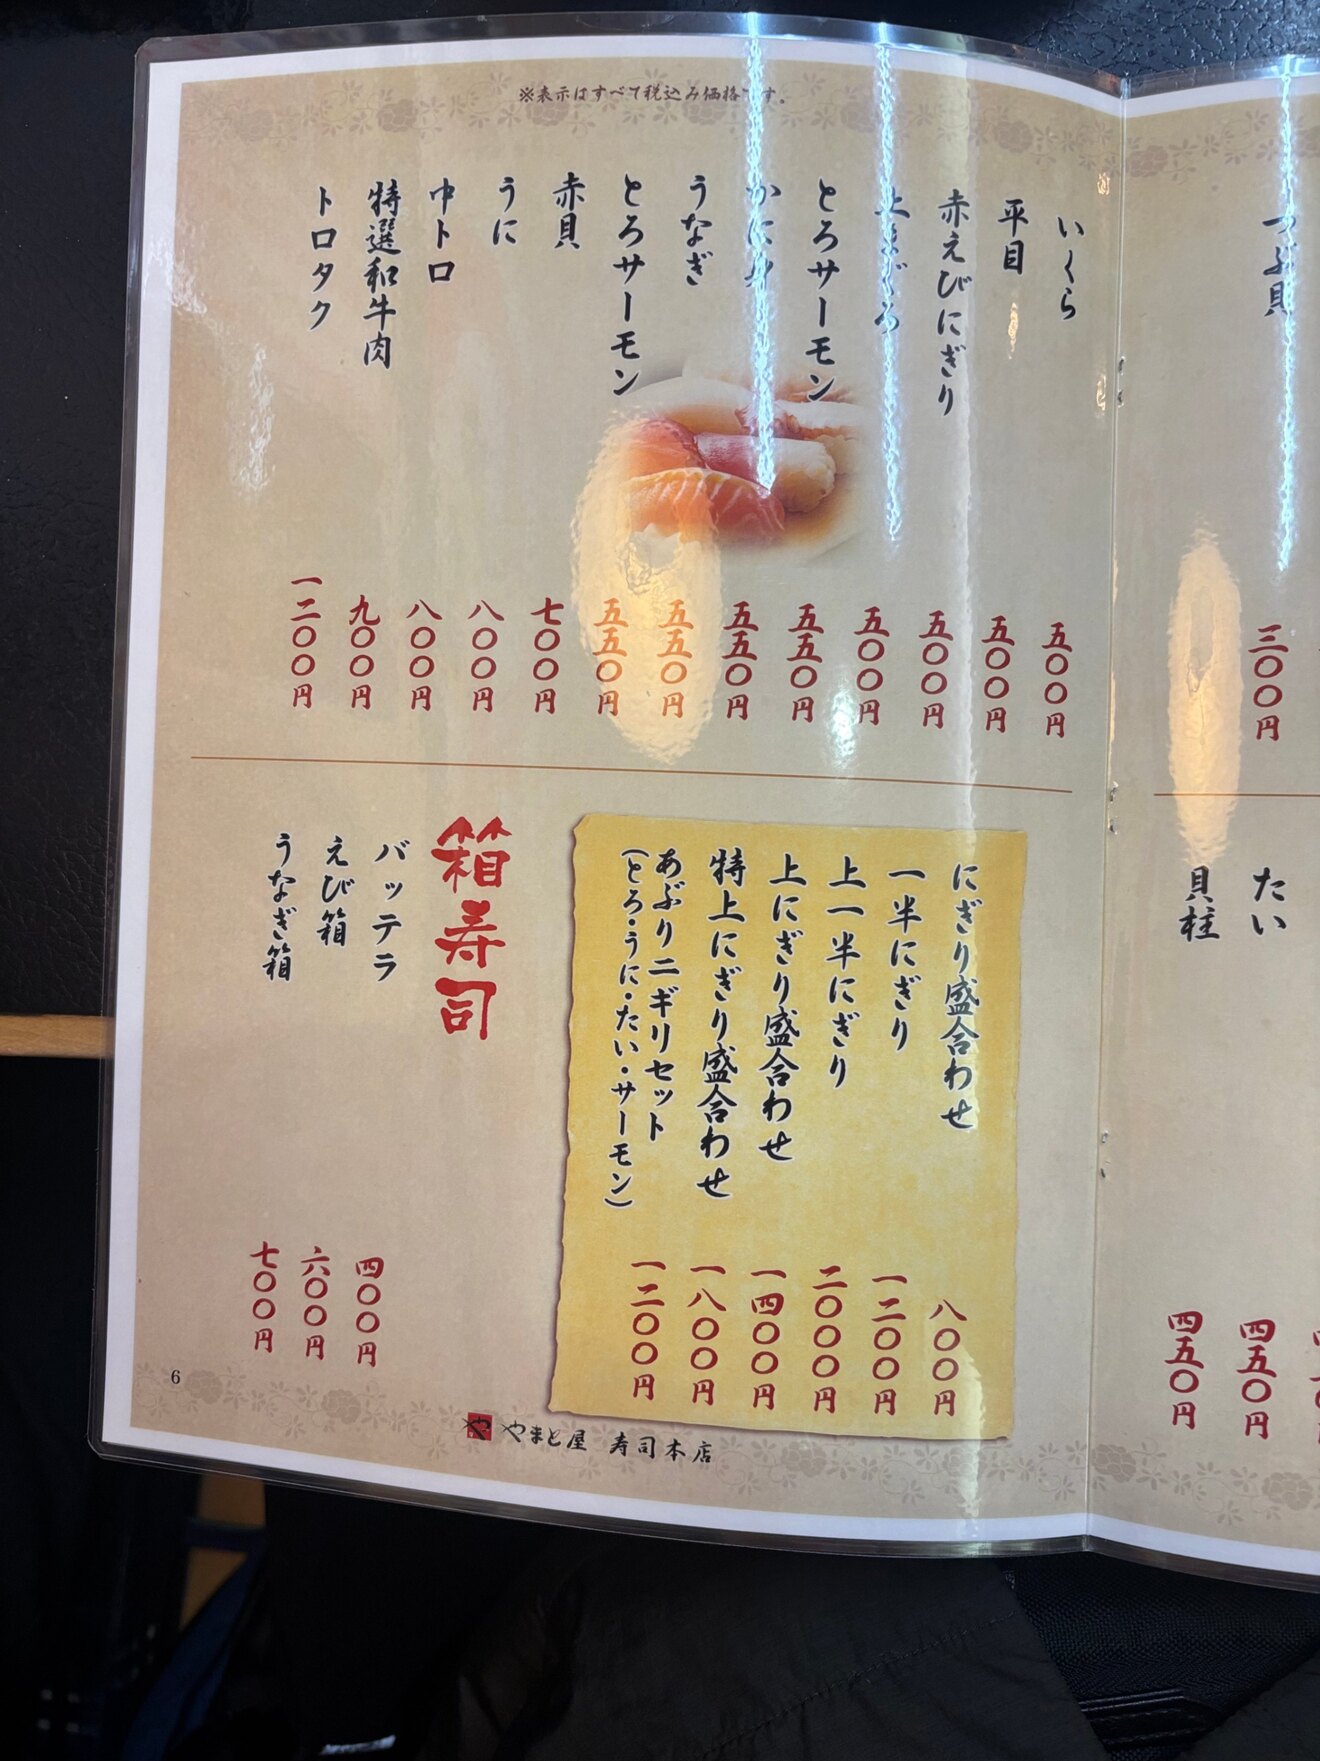 つぶ貝
三〇〇円
たい
四五〇円
貝柱
四五〇円
※表示はすべて税込み価格です。
いくら
五〇〇円
平目
五〇〇円
赤えびにぎり
五〇〇円
上まぐろ
五〇〇円
とろサーモン
五五〇円
かに身
五五〇円
うなぎ
五五〇円
とろサーモン
五五〇円
赤貝
七〇〇円
うに
八〇〇円
中トロ
八〇〇円
特選和牛肉
九〇〇円
トロタク
一二〇〇円
にぎり盛合わせ
八〇〇円
一半にぎり
一二〇〇円
上一半にぎり
二〇〇〇円
上にぎり盛合わせ
一四〇〇円
特上にぎり盛合わせ
一八〇〇円
あぶりニギリセット
(とろ・うに・たい・サーモン)
一二〇〇円
箱寿司
バッテラ
四〇〇円
えび箱
六〇〇円
うなぎ箱
七〇〇円
6
や やまと屋 寿司本店